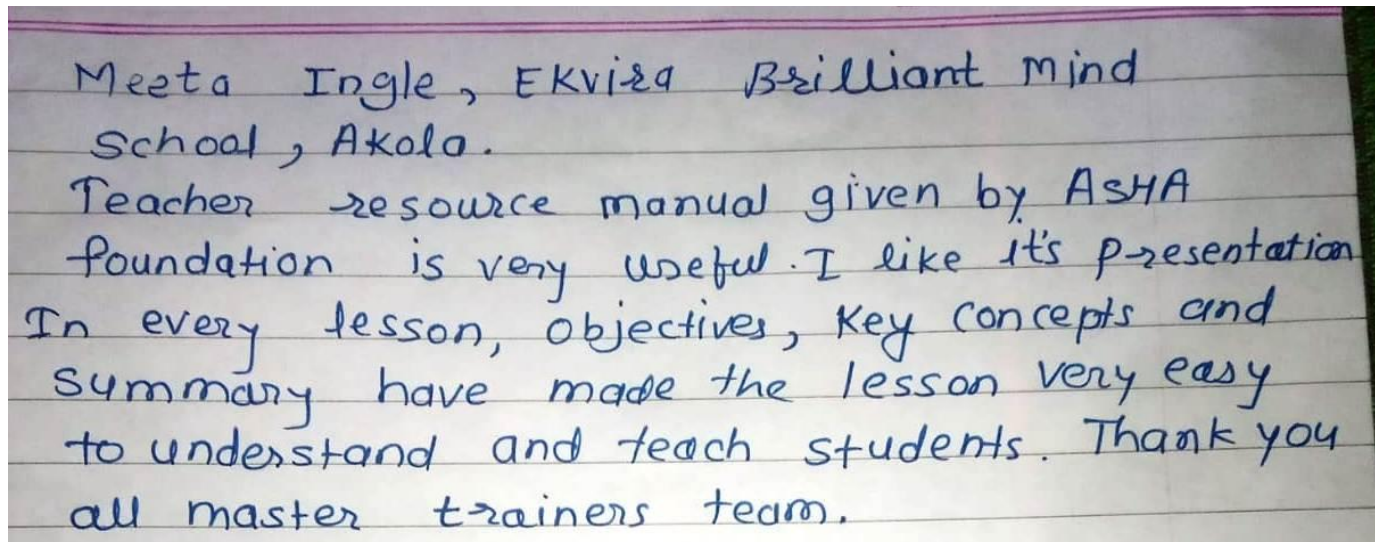 Meeta Ingle, Ekvira Brilliant Mind
School, Akola.
Teacher resource manual given by ASHA
foundation is very useful. I like it's presentation
In every lesson, objectives, key concepts and
summary have made the lesson very easy
to understand and teach students. Thank you
all master trainers team.